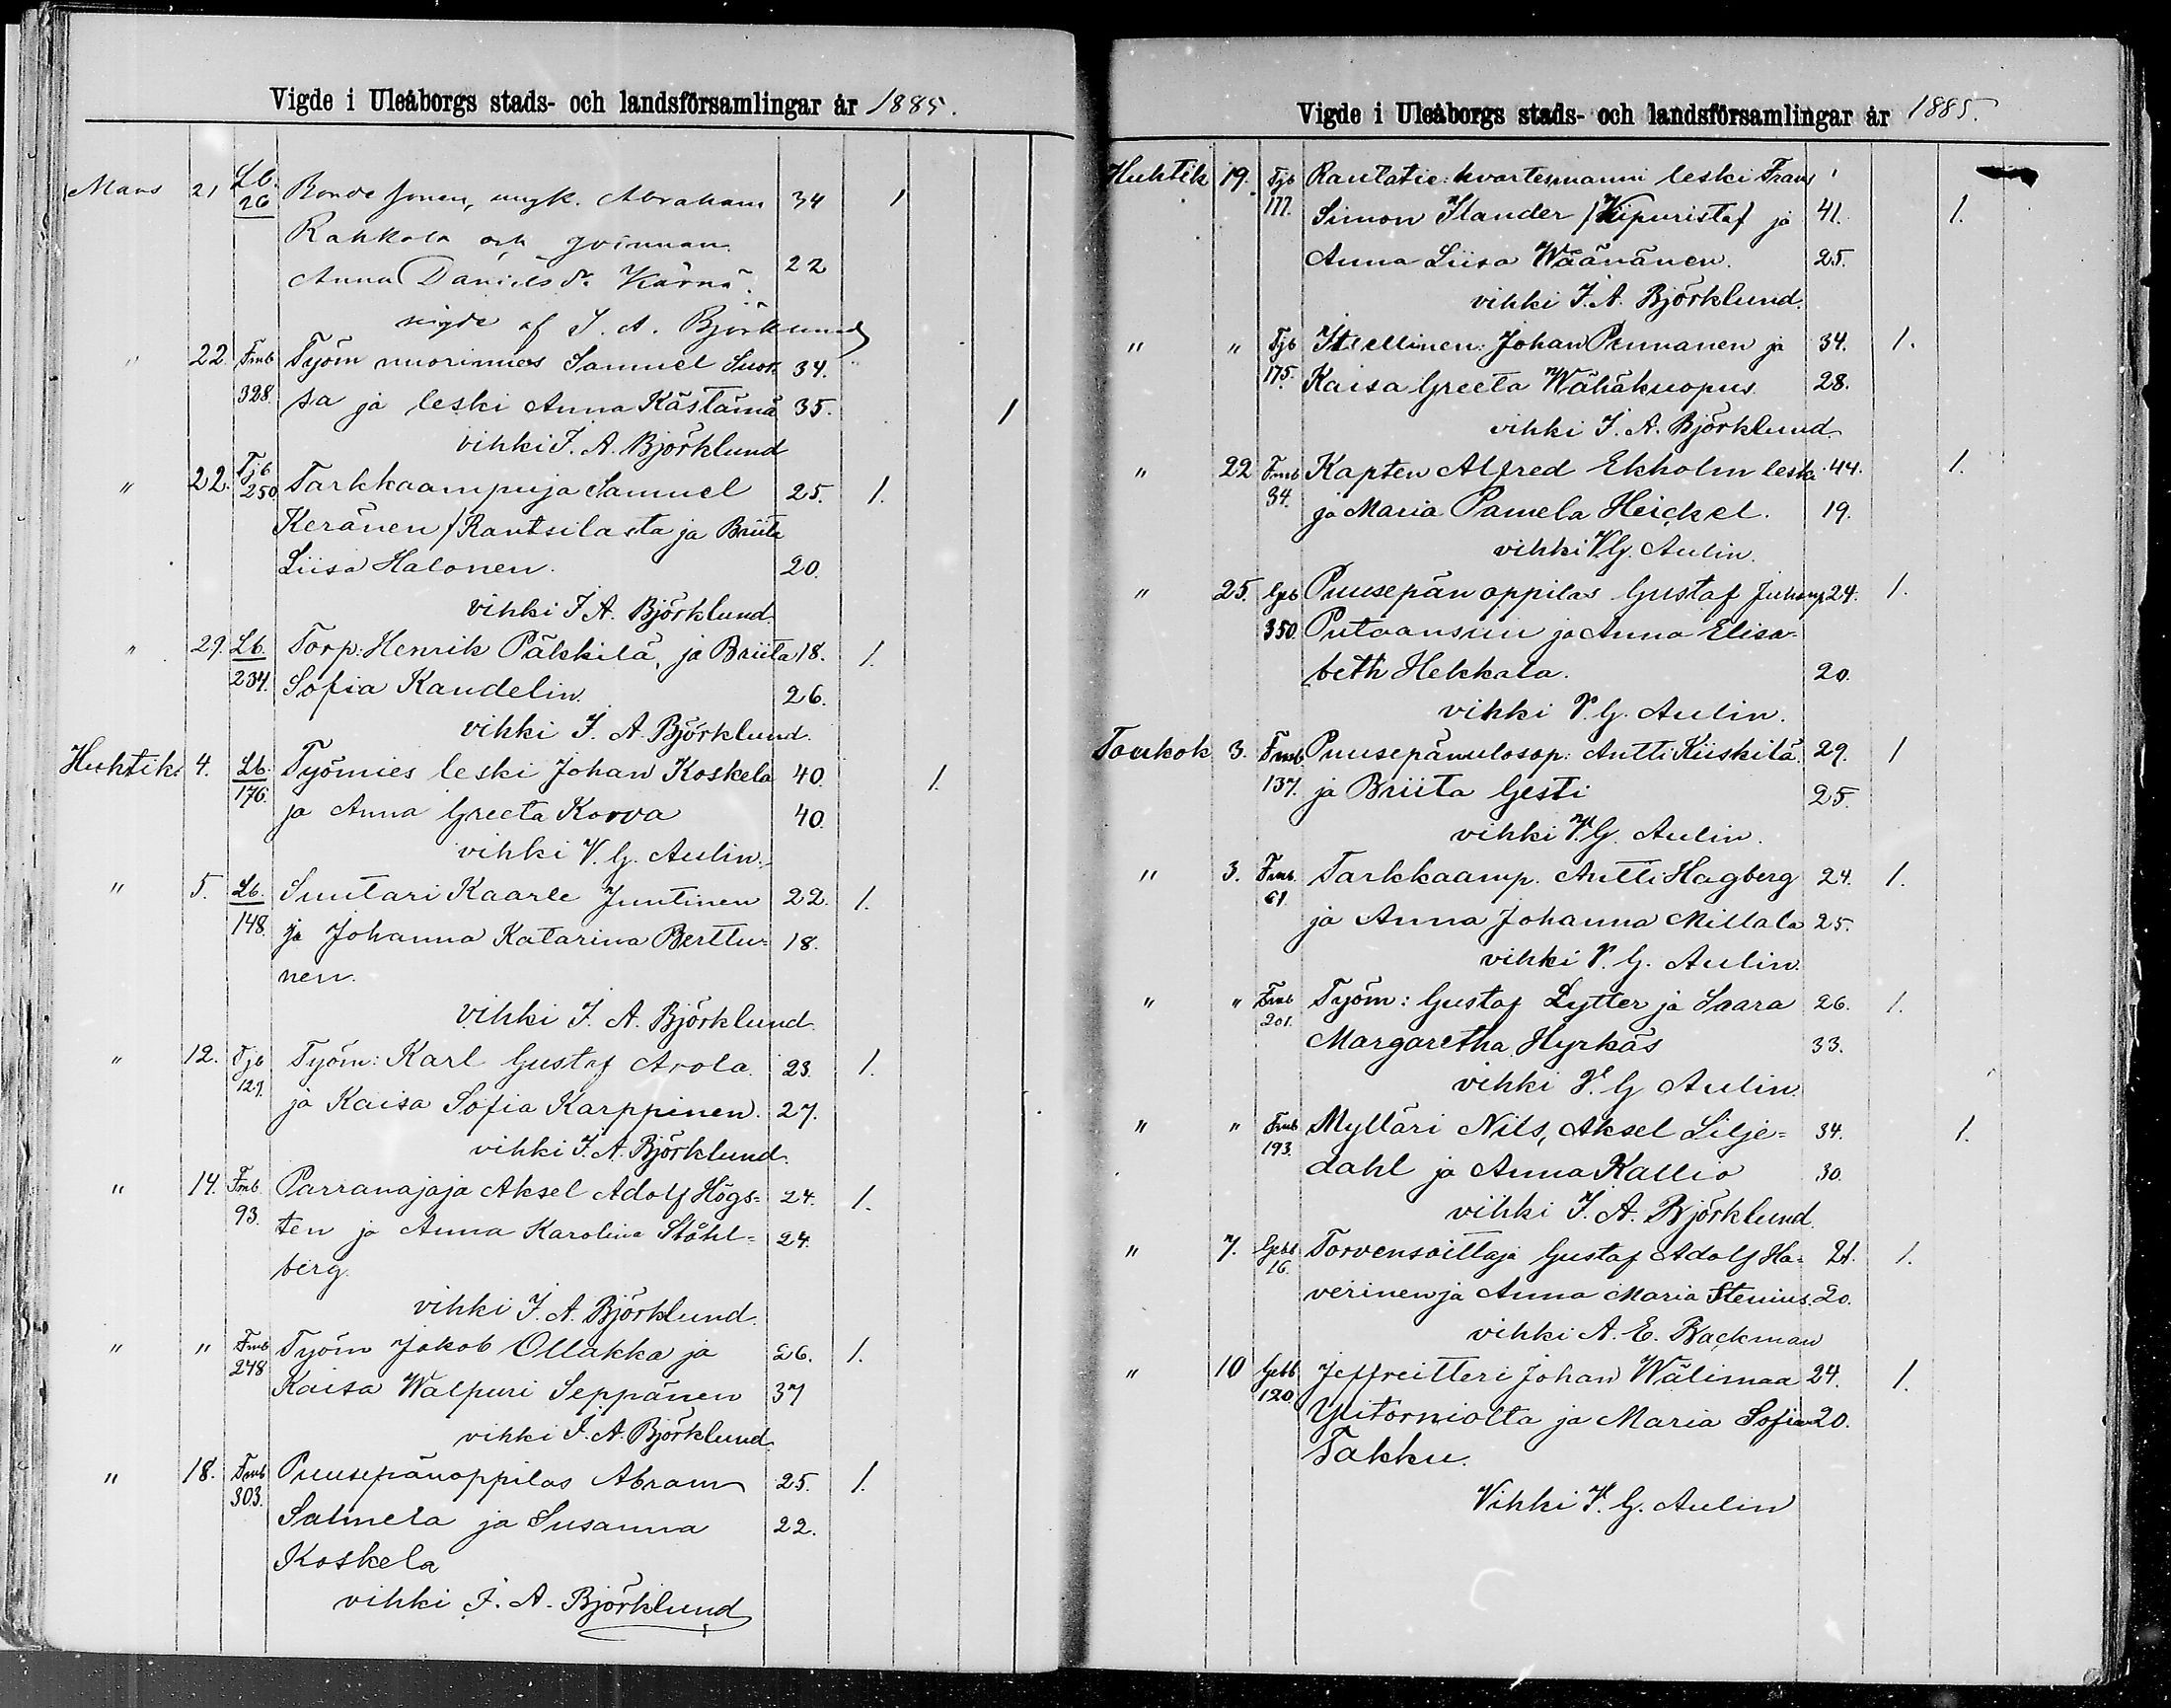 Vigde i Uleåborgs stads- och landsförsamlingar år 1885.
Mars 21 Lb. 26 Bonde sonen, ungk. Abraham 34 1
Rahkola och qvinnan
Anna Danielsdr Kärnä. 22
vigde af J. A. Björklund
" 22. Fmb 328. Työm nuorimies Samuel Suor- 34.
sa ja leski Anna Kästämä 35. 1
vihki J. A. Björklund
" 22. Tjb 250 Tarkkaampuja Samuel 25. 1.
Keränen / Rantsilasta ja Briita
Liisa Halonen. 20.
vihki J. A. Björklund.
" 29. Lb. 234. Torp: Henrik Pälkkilä, ja Briita 18. 1.
Sofia Kandelin. 26.
vihki J. A. Björklund.
Huhtik: 4. Lb. 176. Työmies leski Johan Koskela 40. 1.
ja Anna Greeta Korva 40.
vihki V. G. Aulin.
" 5. Lb. 148. Suutari Kaarle Juntinen 22. 1.
ja Johanna Katarina Perttu= 18.
nen.
vihki J. A. Björklund.
" 12. Tjb 129. Työm: Karl Gustaf Arola. 23. 1.
ja Kaisa Sofia Karppinen. 27.
vihki J. A. Björklund.
" 14. Fmb 93. Parranajaja Aksel Adolf Högs= 24. 1.
ten ja Anna Karolina Ståhl= 24.
berg.
vihki J. A. Björklund.
" " Fmb 248 Työm Jakob Ollakka ja 26. 1.
Kaisa Walpuri Seppänen 37
vihki J. A. Björklund.
" 18. Fmb 303. Puusepänoppilas Abram 25. 1.
Salmela ja Susanna 22.
Koskela
vihki J. A. Björklund
Vigde i Uleåborgs stads- och landsförsamlingar år 1885.
Huhtik 19. Tjb 177. Rautatie: kvartesmanni leski Frans
Simon Ilander / Wiipurista / ja 41. 1.
Anna Liisa Wäänänen. 25.
vihki J. A. Björklund.
" " Tjb 175. Itsellinen: Johan Pennanen ja 34. 1.
Kaisa Greeta Wähäkuopus. 28.
vihki J. A. Björklund.
" 22 Fmb 34. Kapten Alfred Ekholm leski 44. 1.
ja Maria Pamela Heickel. 19.
vihki V. G. Aulin.
" 25. Geb 350. Puusepän oppilas Gustaf Juhanp. 24. 1.
Putaansuu ja Anna Elisa-
beth Hekkala. 20.
vihki V. G. Aulin.
Toukok 3. Fmb 137. Puusepänulosop: Antti Kiiskilä 29. 1
ja Briita Gesti 25.
vihki V. G. Aulin.
" 3. Fmb. 61. Tarkkaamp. Antti Hagberg 24. 1.
ja Anna Johanna Millala 25.
vihki V. G. Aulin.
" " Fmb 201. Työm: Gustaf Lytter ja Saara 26. 1.
Margaretha Hyrkäs 33.
vihki V. G Aulin.
" " Fmb 193. Mylläri Nils, Aksel Lilje= 34. 1.
dahl ja Anna Kallio 30.
vihki J. A. Björklund.
" 7. Gebb 16. Torvensoittaja Gustaf Adolf Ha= 21. 1.
verinen ja Anna Maria Stenius. 20.
vihki A. E. Backman
" 10 Gebb 120 Jeffreitteri Johan Wälimaa 24. 1.
Ylitorniolta ja Maria Sofia 20.
Takku.
Vihki V. G. Aulin